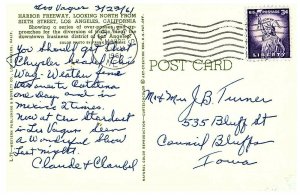 Las Vegas 7/29/61
HARBOR FREEWAY, LOOKING NORTH FROM
SIXTH STREET, LOS ANGELES, CALIFORNIA
Showing a series of over-passes and
proaches for the diversion of traffic into the
downtown business district of Los Angeles
You should get that
Chrysler headed this
Way. Weather fine
one day and
Mexico 2 times.
Now at the Stardust
in Las Vegas. Seen
a Wonderful Show
last night.
Claude & Claribel
POST CARD
Mr & Mrs J.B. Turner
535 Bluff St
Council Bluffs
Iowa
LIBERTY